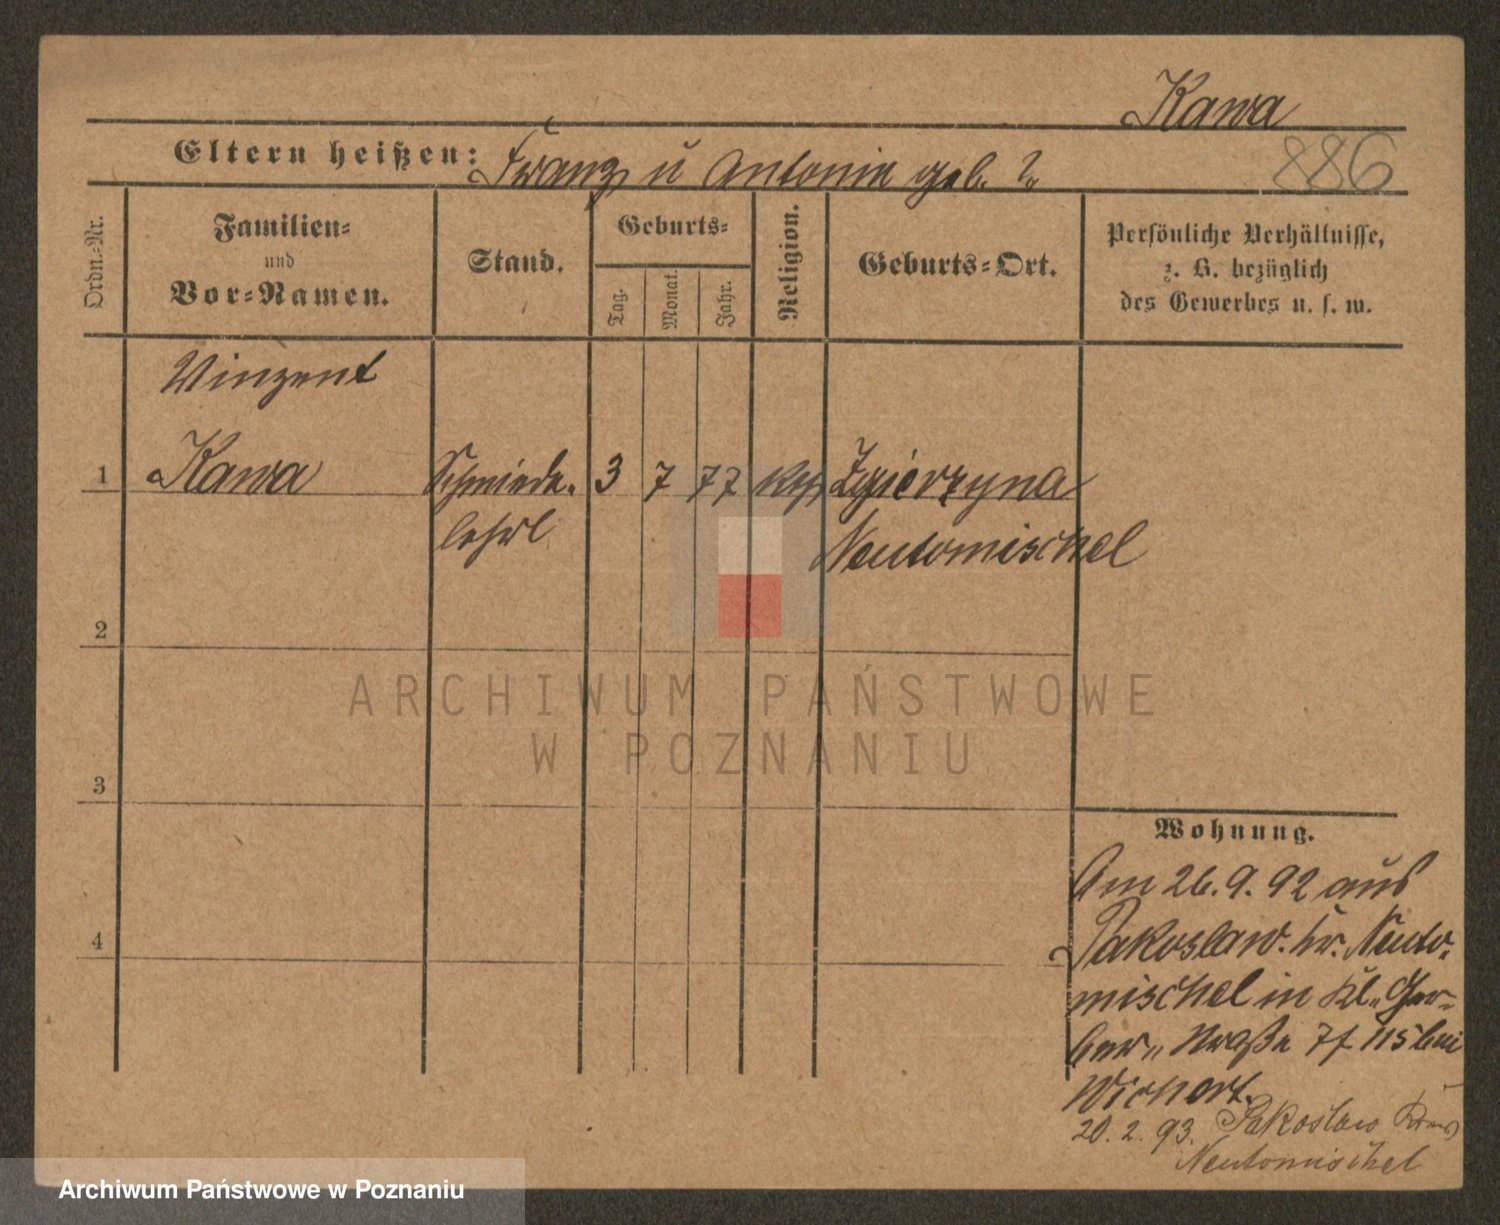 Kawa
886
Eltern heißen: Franz u Antonie geb. ?
Ordn.-Nr.
Familien-
und
Vor-Namen.
Stand.
Geburts-
Tag.
Monat.
Jahr.
Religion.
Geburts-Ort.
Persönliche Verhältnisse,
z. B. bezüglich
des Gewerbes u. s. w.
Vinzent
1 Kawa Schmiede- 3 7 77 kath Zgierzyna
lehrl Neutomischel
2
3
4
Wohnung.
Am 26.9.92 aus
Pakoslaw. Kr. Neuto-
mischel in Kl. Ger-
ber Straße 7f 115 bei
Wichert.
20.2.93. Pakoslaw Kreis
Neutomischel
ARCHIWUM PAŃSTWOWE
W POZNANIU
Archiwum Państwowe w Poznaniu